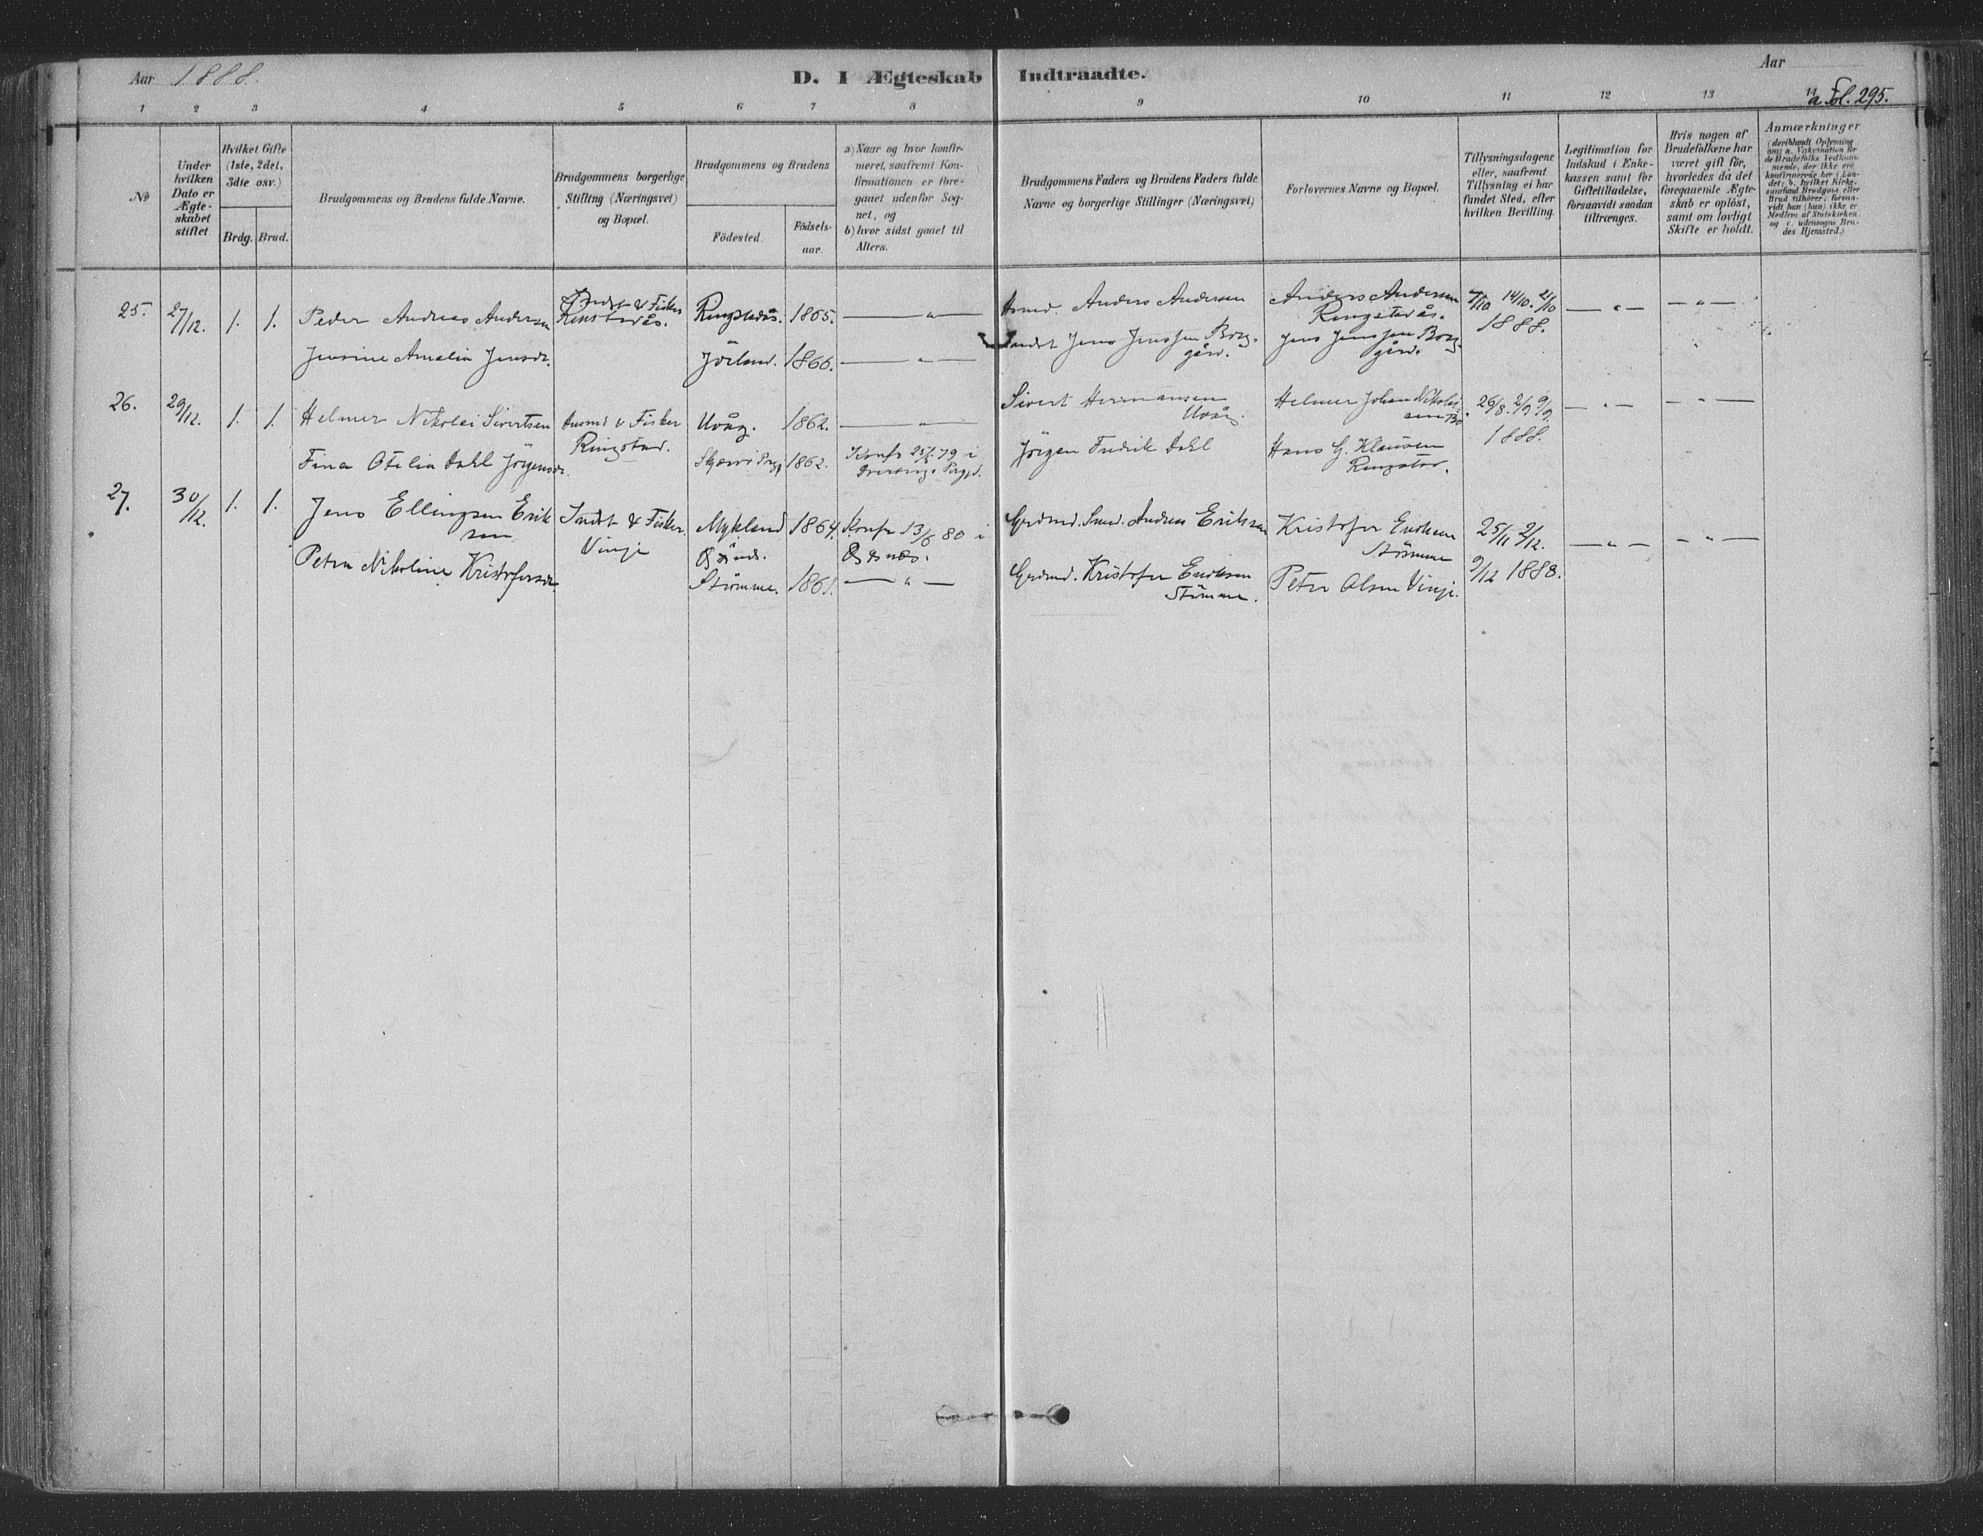 Aar 1888.
D. I Ægteskab Indtraadte.
Aar
a Fol. 295.
1 2 3 4 5 6 7 8 9 10 11 12 13 14
No
Under hvilken Dato er Ægteskabet stiftet.
Hvilket Gifte (1ste, 2det, 3die osv.)
Brdg. Brud.
Brudgommens og Brudens fulde Navne.
Brudgommens borgerlige Stilling (Næringsvei) og Bopæl.
Brudgommens og Brudens
Födested.
Födselsaar.
a) Naar og hvor konfirmeret, saafremt Konfirmationen er foregaaet udenfor Sognet, og
b) hvor sidst gaaet til Alters.
Brudgommens Faders og Brudens Faders fulde Navne og borgerlige Stillinger (Næringsvei)
Forlovernes Navne og Bopæl.
Tillysningsdagene eller, saafremt Tillysning ei har fundet Sted, efter hvilken Bevilling.
Legitimation for Indskud i Enkekassen samt for Giftetilladelse, forsaavidt saadan tiltrænges.
Hvis nogen af Brudefolkene har været gift för, hvorledes da det foregaaende Ægteskab er oplöst, samt om lovligt Skifte er holdt.
Anmærkninger (deriblandt Oplysning om: a. Vakcination for de Brudefolks Vedkommende, der ikke ere konfirmerede her i Landet; b. hvilket Kirkesamfund Brudgom eller Brud tilhörer, forsaavidt han (hun) ikke er Medlem af Statskirken, og c. udensogns Brudes Hjemsted.)
25. 27/12. 1. 1. Peder Andreas Andersen
Indst & Fisker
Ringstadås. 1865. — " —
Anders Andersen
Anders Andersen
Ringstadås.
7/10 14/10. 21/10
1888.
— " — — " —
Jensine Amalia Jensdr.
Jörland. 1866. — " —
Indst Jens Jenssen Borggård.
Jens Jenssen Borggård.
26. 29/12. 1. 1. Helmer Nikolai Sivertsen
& Fisker
Ringstad.
Uvåg. 1862. — " —
Sivert Hermansen
Uvåg.
Helmer Johan Nikolaisen
26/8. 2/9 9/9.
1888.
— " — — " —
Fina Otelia Dahl Jörgensdr.
1862. Konfr 79 i
Jörgen Fredrik Dahl
Hans G. Klausen
Ringstad.
27. 30/12. 1. 1. Jens Ellingsen Eriksen
Indst & Fisker
Vinje
Mykland
1864. Konfr 13/6 80 i
Öksnæs.
Grdmd. Andreas Eriksen
Kristofer Eriksen
Strömme
25/11 2/12.
9/12 1888.
— " — — " —
Petra Nikoline Kristofersdr.
Strömme. 1861. — " —
Grdmd. Kristofer Eriksen
Strömme.
Peter Olsen Vinje.